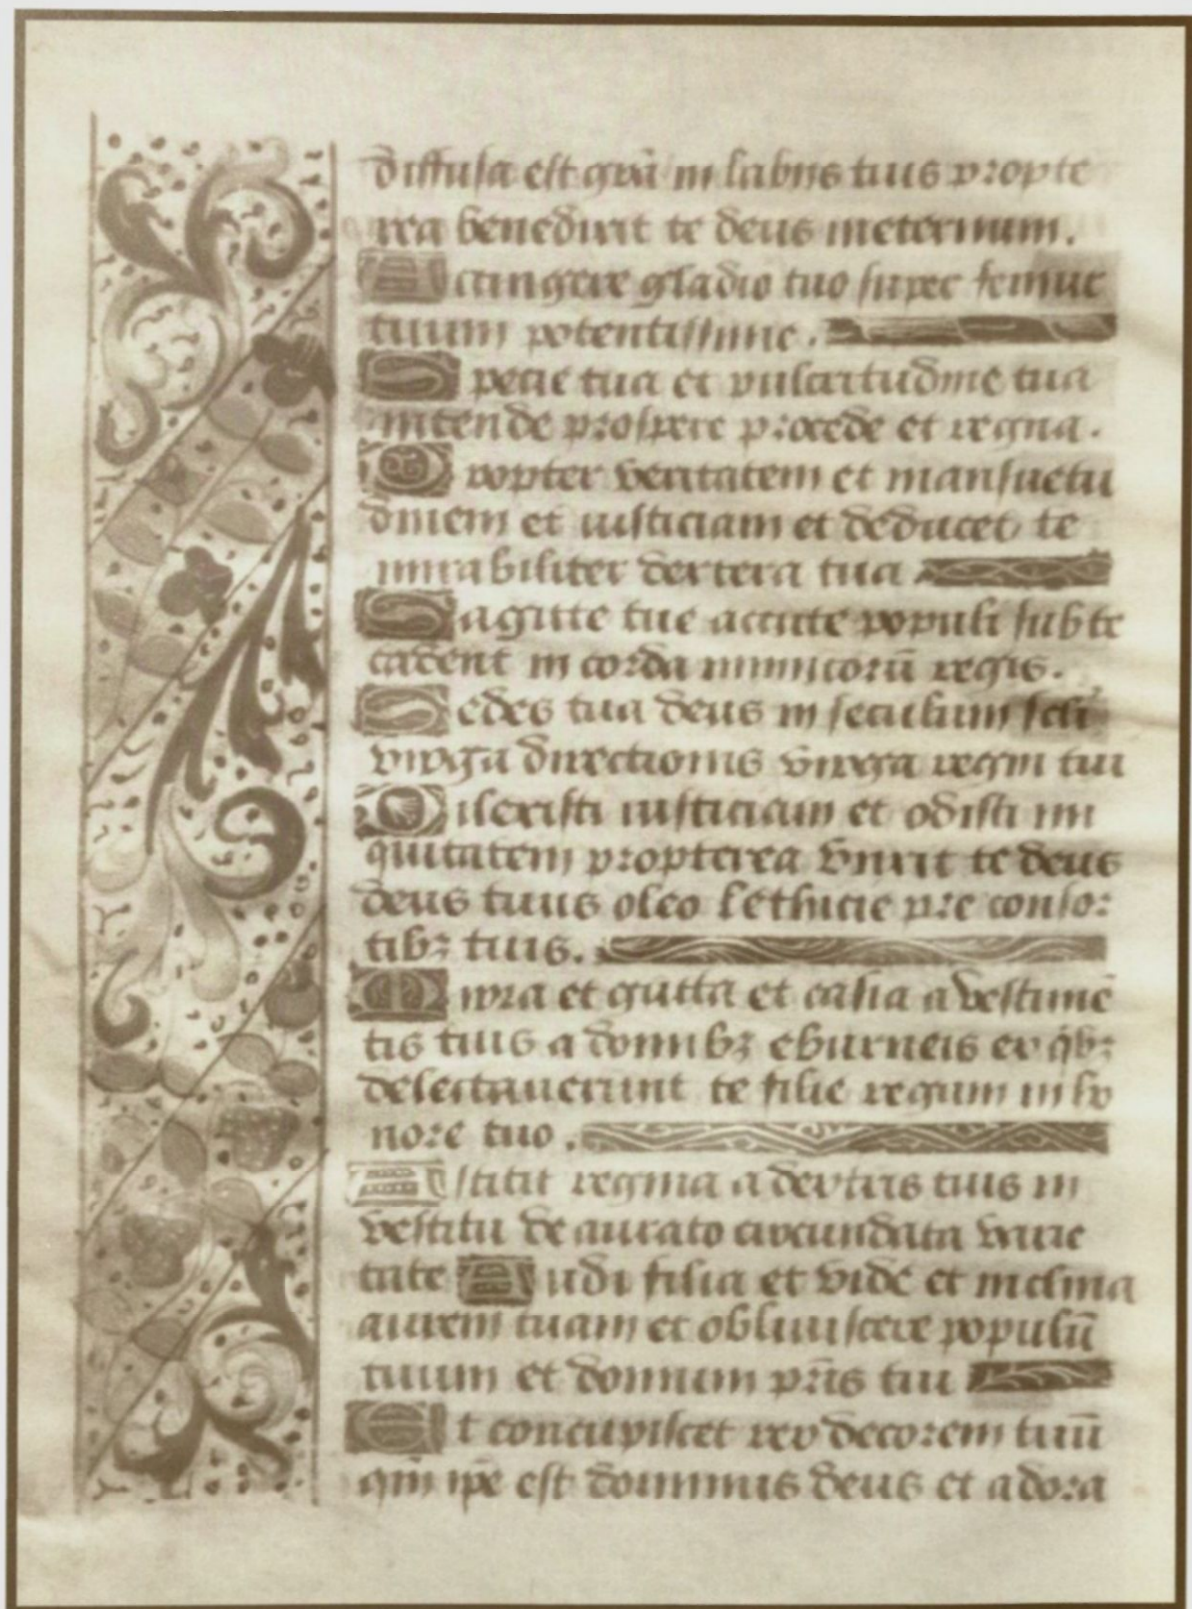 diffusa est grã in labiis tuis propte
rea benedixit te deus ineternum.
Accingere gladio tuo super femur
tuum potentissime.
Specie tua et pulcritudine tua
intende prospere procede et regna.
Propter veritatem et mansuetu
dinem et iusticiam et deducet te
mirabiliter dextera tua
Sagitte tue accute populi sub te
cadent in corda inimicorũ regis.
Sedes tua deus in seculum scłi
virga directionis virga regni tui
Dilexisti iusticiam et odisti ini
quitatem propterea vnxit te deus
deus tuus oleo lethicie pre consor
tibꝫ tuis.
Mirra et gutta et casia a vestimẽ
tis tuis a domibꝫ eburneis ex qͥbꝫ
delectauerunt te filie regum in ho
nore tuo.
Astitit regina a dextris tuis in
vestitu de aurato circundata varie
tate Audi filia et vide et inclina
aurem tuam et obliuiscere populũ
tuum et domum pr̃is tui
Et concupiscet rex decorem tuũ
qm̃ ip̃e est dominus deus et adora